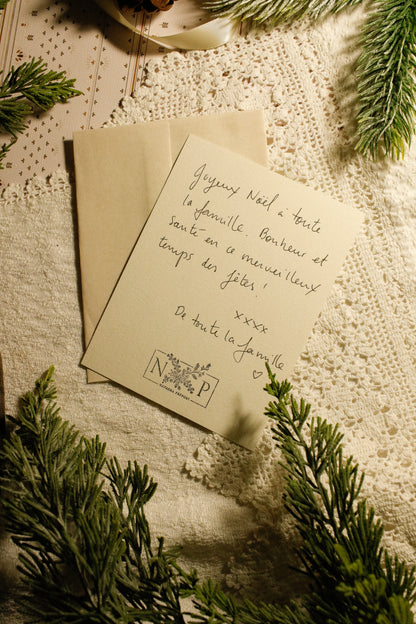 Joyeux Noël à toute
la famille. Bonheur et
santé en ce merveilleux
temps des fêtes!
xxxx
De toute la famille
♡
N P